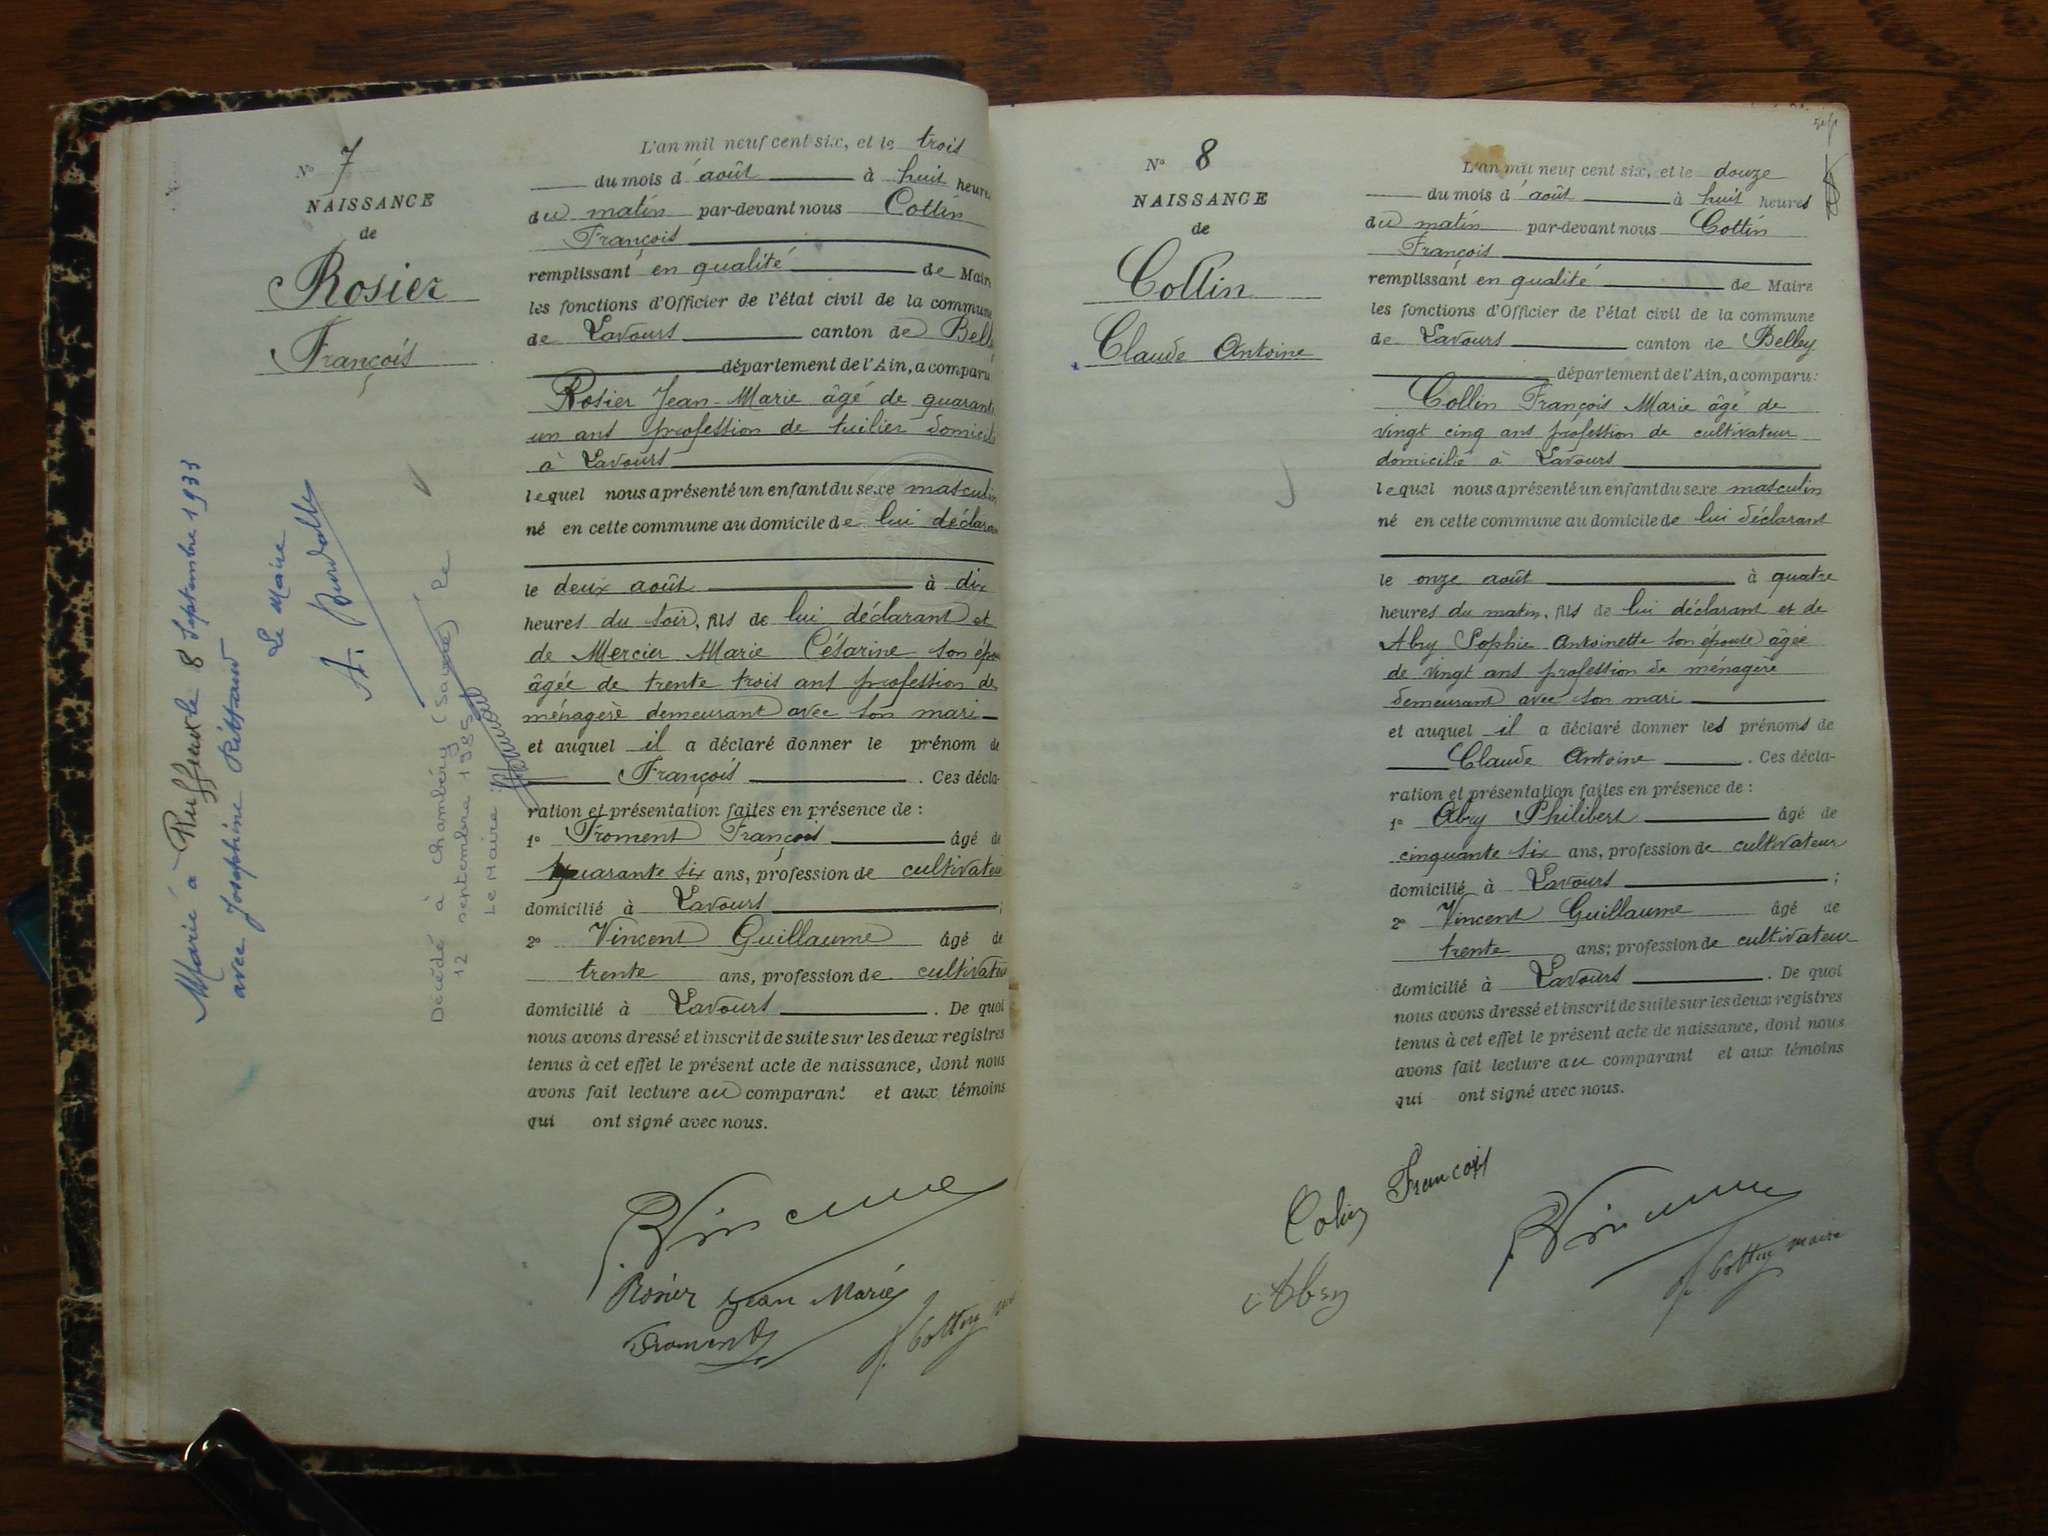 N° 7
NAISSANCE
de
Rosier
François
Marié à Ruffieux le 8 Septembre 1933
avec Joséphine
Le Maire
Décédé à Chambéry (Savoie) le
12 septembre 1985
Le Maire
L'an mil neuf cent six, et le trois
du mois d'août à huit heures
du matin par-devant nous Cottin
François
remplissant en qualité de Maire
les fonctions d'Officier de l'état civil de la commune
de Lavours canton de Bell
département de l'Ain, a comparu
Rosier Jean-Marie âgé de quarante
un ans profession de tuilier domicilié
à Lavours
lequel nous a présenté un enfant du sexe masculin
né en cette commune au domicile de lui déclarant
le deux août à dix
heures du soir, fils de lui déclarant et
de Mercier Marie Césarine son épou
âgée de trente trois ans profession de
ménagère demeurant avec son mari
et auquel il a déclaré donner le prénom de
François. Ces décla-
ration et présentation faites en présence de :
1° Froment François âgé de
quarante six ans, profession de cultivateur
domicilié à Lavours ;
2° Vincent Guillaume âgé de
trente ans, profession de cultivateur
domicilié à Lavours. De quoi
nous avons dressé et inscrit de suite sur les deux registres
tenus à cet effet le présent acte de naissance, dont nous
avons fait lecture au comparant et aux témoins
qui ont signé avec nous.
Vincent
Rosier Jean Marie
Froment
f. Cottin maire
N° 8
NAISSANCE
de
Collin
Claude Antoine
L'an mil neuf cent six, et le douze
du mois d'août à huit heures
du matin par-devant nous Cottin
François
remplissant en qualité de Maire
les fonctions d'Officier de l'état civil de la commune
de Lavours canton de Belley
département de l'Ain, a comparu :
Collin François Marie âgé de
vingt cinq ans profession de cultivateur
domicilié à Lavours
lequel nous a présenté un enfant du sexe masculin
né en cette commune au domicile de lui déclarant
le onze août à quatre
heures du matin, fils de lui déclarant et de
Abry Sophie Antoinette son épouse âgée
de vingt ans profession de ménagère
demeurant avec son mari
et auquel il a déclaré donner les prénoms de
Claude Antoine. Ces décla-
ration et présentation faites en présence de :
1° Abry Philibert âgé de
cinquante six ans, profession de cultivateur
domicilié à Lavours ;
2° Vincent Guillaume âgé de
trente ans; profession de cultivateur
domicilié à Lavours. De quoi
nous avons dressé et inscrit de suite sur les deux registres
tenus à cet effet le présent acte de naissance, dont nous
avons fait lecture au comparant et aux témoins
qui ont signé avec nous.
Colin François
Vincent
Abry
f. Cottin maire